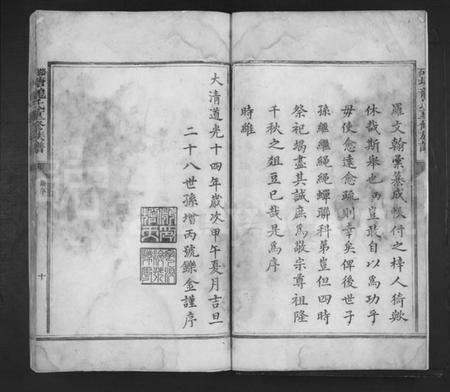 羅文翰彙纂成帙付之梓人猗歟
休哉斯舉也丙豈敢自以為功乎
毋使愈遠愈疏則幸矣俾後世子
孫繼繼繩繩蟬聯科第豈但四時
祭祀竭盡其誠庶為敬宗尊祖隆
千秋之俎豆已哉是為序
時維
大清道光十四年歲次甲午夏月吉旦
二十八世孫增丙號鑠金謹序
十